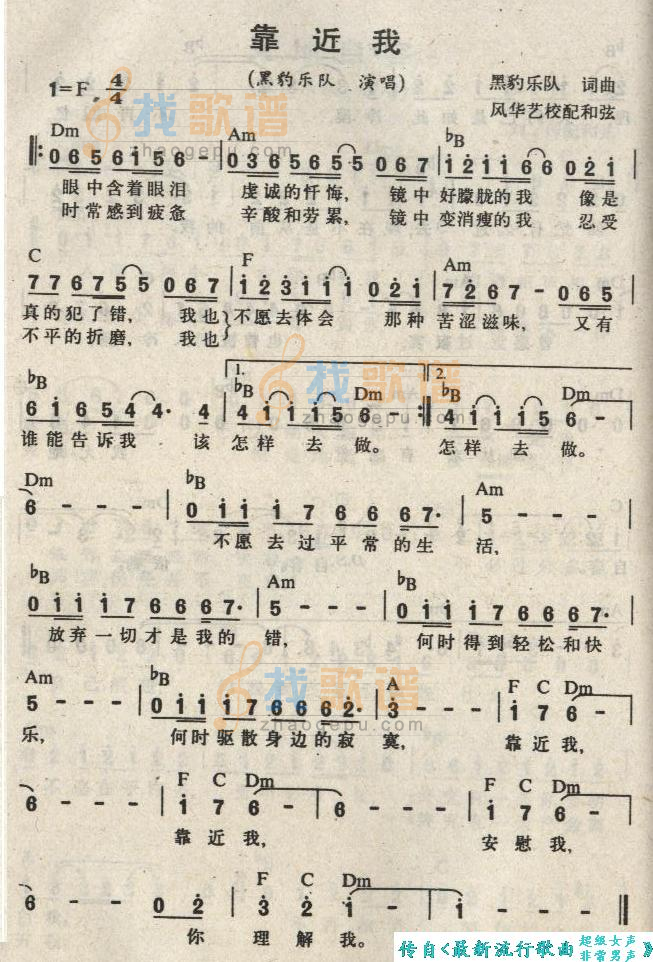 靠近我
1=F 4/4
(黑豹乐队 演唱)
黑豹乐队 词曲
风华艺校配和弦
找歌谱
zhaogepu.com
Dm Am ♭B
0 6 5 6 i 5 6 - | 0 3 6 5 6 5 5 0 6 7 | i 2 i i 6 6 0 2 i |
眼中含着眼泪 虔诚的忏悔, 镜中 好朦胧的我 像是
时常感到疲惫 辛酸和劳累, 镜中 变消瘦的我 忍受
C F Am
7 7 6 7 5 5 0 6 7 | i 2 3 i i i 0 2 i | 7 2 6 7 - 0 6 5 |
真的犯了错, 我也 不愿去体会 那种 苦涩滋味, 又有
不平的折磨, 我也
1. 2.
♭B ♭B Dm ♭B Dm
6 i 6 5 4 4· 4 | 4 i i i 5 6 - :| 4 i i i 5 6 - |
谁能告诉我 该 怎样 去 做。 怎样 去 做。
找歌谱
zhaogepu.com
Dm ♭B Am
6 - - - | 0 i i i 7 6 6 6 7· | 5 - - - |
不愿去过平常的生 活,
♭B Am ♭B
0 i i i 7 6 6 6 7· | 5 - - - | 0 i i i 7 6 6 6 7· |
放弃一切才是我的 错, 何时得到轻松和快
Am ♭B A F C Dm
5 - - - | 0 i i i 7 6 6 6 2· | 3 - - - | i 7 6 - |
乐, 何时驱散身边的寂 寞, 靠近我,
找歌谱
zhaogepu.com
F C Dm F C Dm
6 - - - | i 7 6 - | 6 - - - | i 7 6 - |
靠近我, 安慰我,
F C Dm
6 - - 0 2 | 3 2 i - | i - - - ||
你 理解我。
传自《最新流行歌曲 超级女声 非常男声》